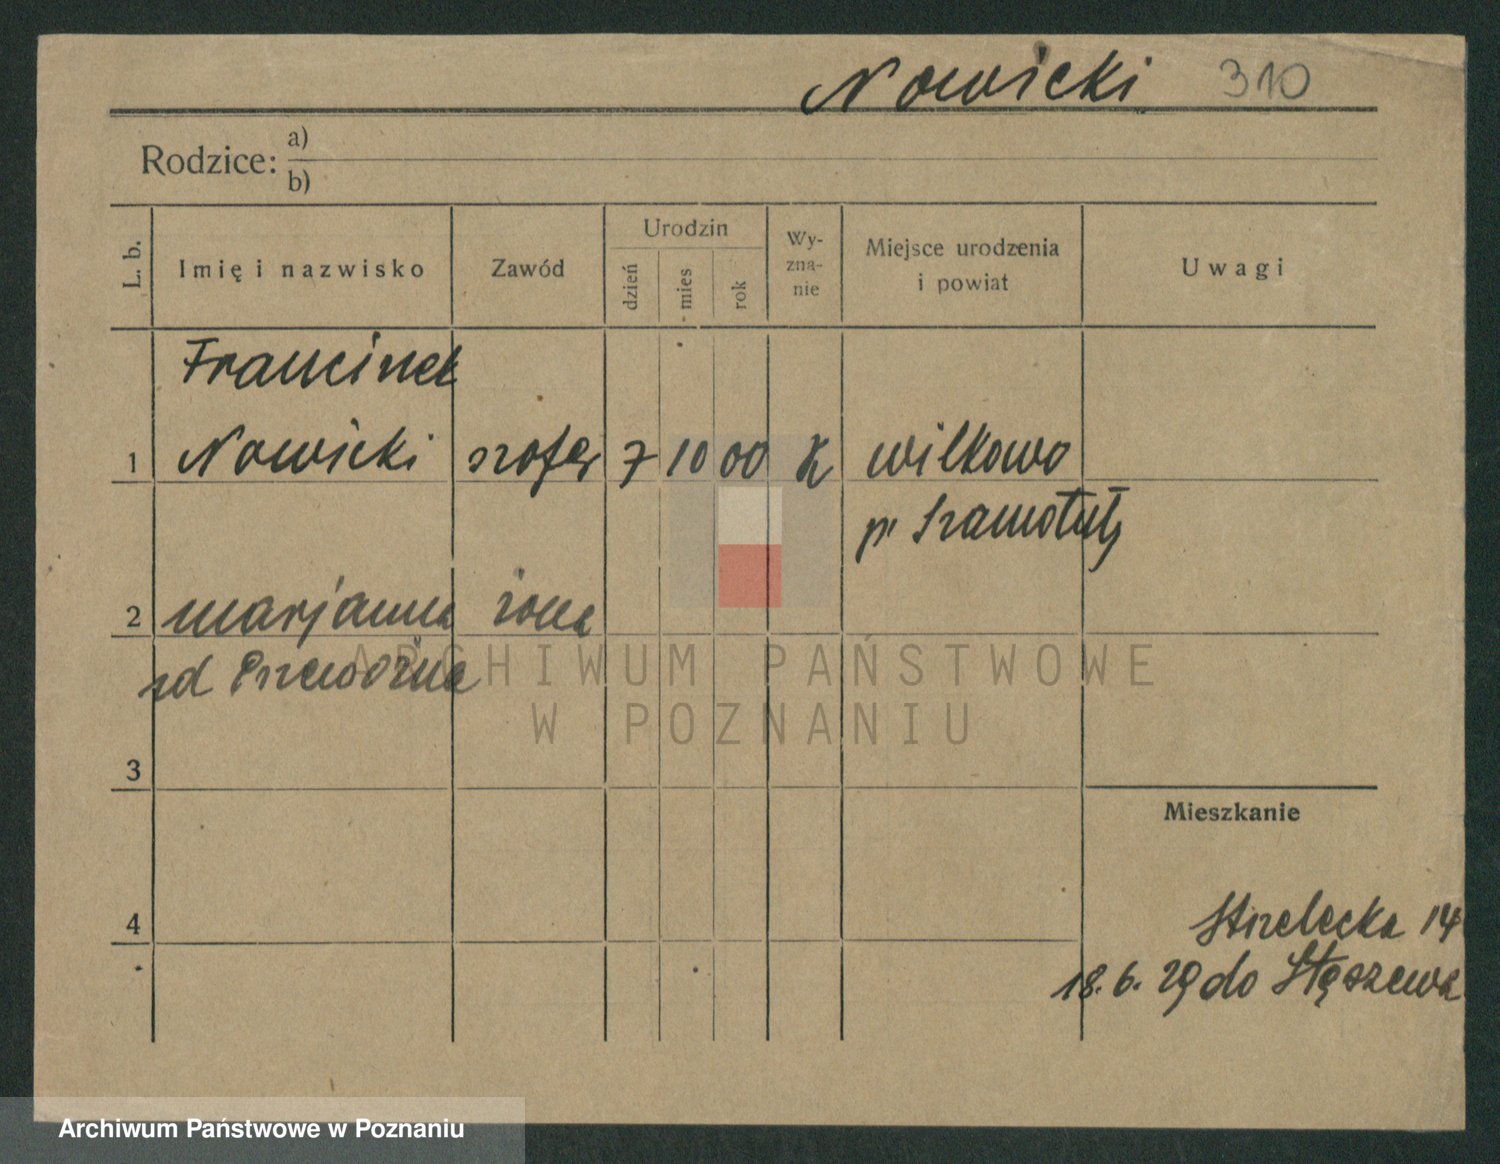 Nowicki 310
Rodzice: a)
b)
L. b.
Imię i nazwisko
Zawód
Urodzin
dzień
mies
rok
Wy-
zna-
nie
Miejsce urodzenia
i powiat
Uwagi
Franciszek
1 Nowicki szofer 7 10 00 K Wilkowo
p. Szamotuły
2 Marjanna żona
zd Przewoźna
ARCHIWUM PAŃSTWOWE
W POZNANIU
3
Mieszkanie
4
Strzelecka 14
18.6.29 do Stęszewa
Archiwum Państwowe w Poznaniu